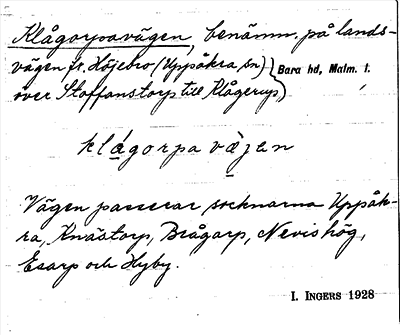 Klågorpavägen, benämn. på lands-
vägen fr. Höjebro (Uppåkra sn) Bara hd, Malm. l.
över Staffanstorp till Klågerup,)
klågorpa vàjen
Vägen passerar socknarna Uppåk-
ra, Knästorp, Brågarp, Nevishög,
Esarp och Hyby.
I. INGERS 1928